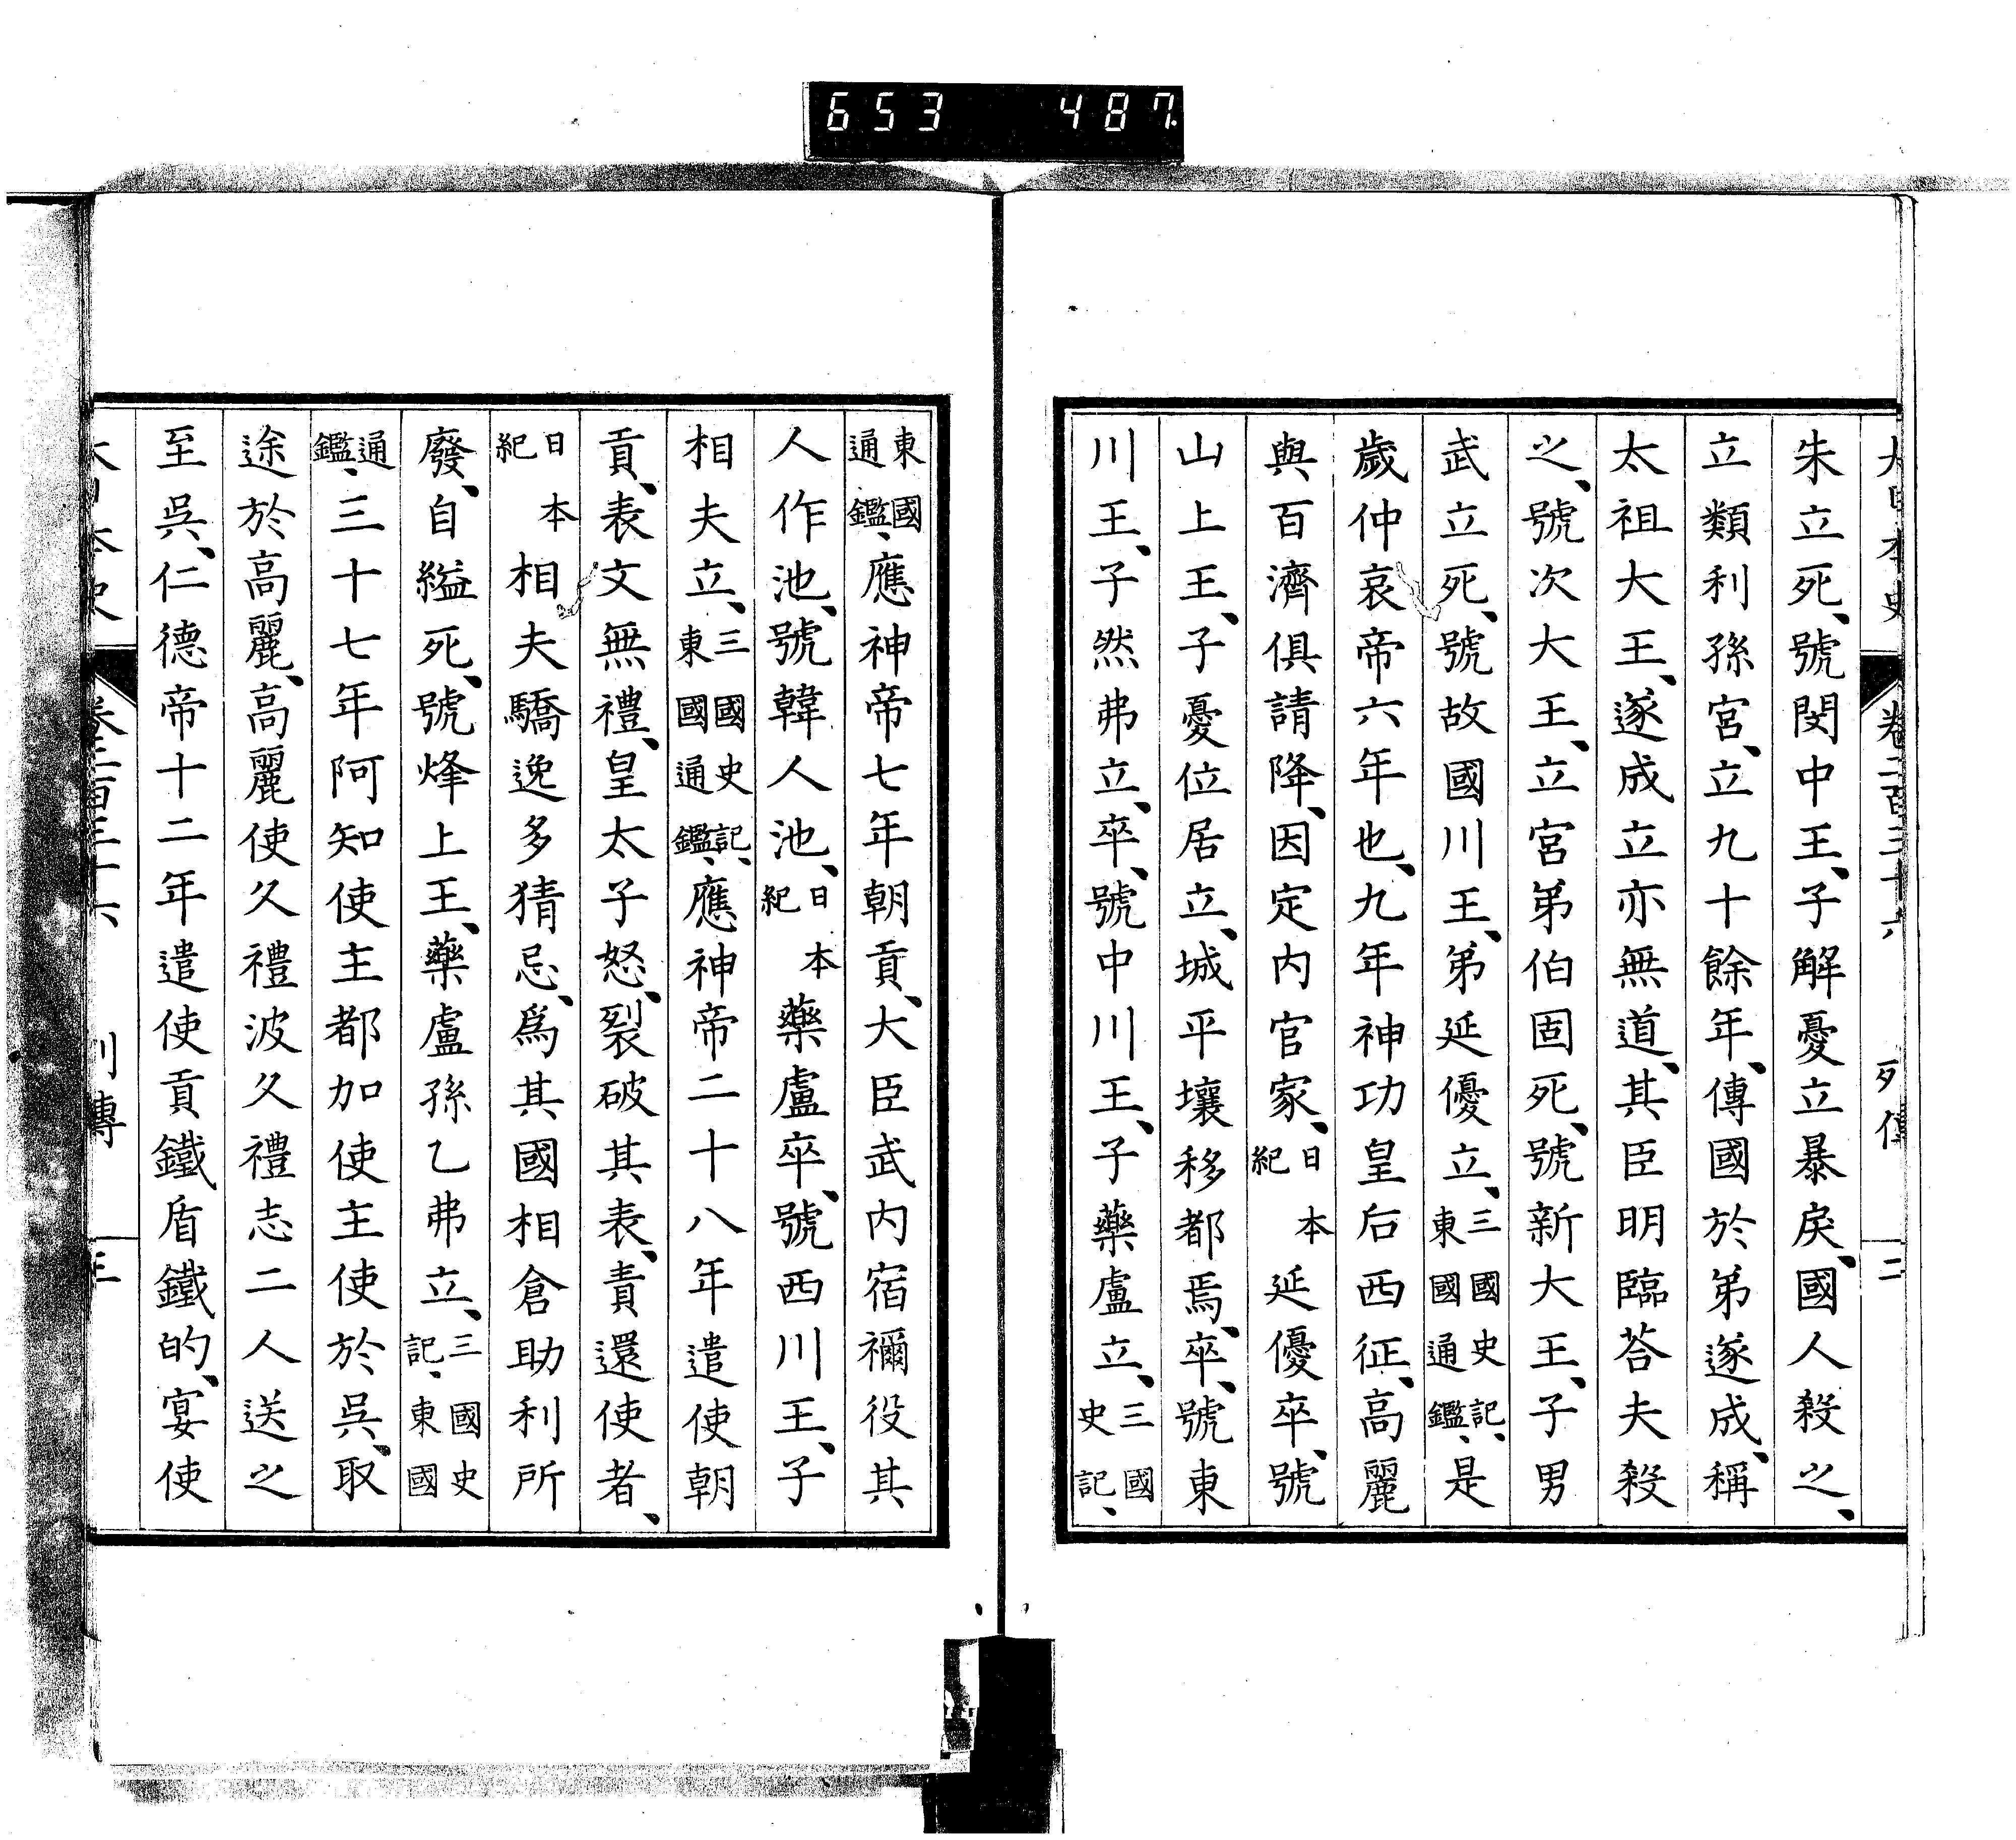 653 487
大日本史 卷二百三十六 列傳 二
朱立死、號閔中王、子解憂立暴戾、國人殺之、
立類利孫宮、立九十餘年、傳國於弟遂成、稱
太祖大王、遂成立亦無道、其臣明臨荅夫殺
之、號次大王、立宮弟伯固死、號新大王、子男
武立死、號故國川王、弟延優立、三國史記、東國通鑑、是
歲仲哀帝六年也、九年神功皇后西征、高麗
與百濟俱請降、因定內官家、日本紀延優卒、號
山上王、子憂位居立、城平壤移都焉、卒、號東
川王、子然弗立、卒、號中川王、子藥盧立、三國史記、
東國通鑑、應神帝七年朝貢、大臣武內宿禰役其
人作池、號韓人池、日本紀藥盧卒、號西川王、子
相夫立、三國史記、東國通鑑、應神帝二十八年遣使朝
貢、表文無禮、皇太子怒、裂破其表、責還使者、
日本紀相夫驕逸多猜忌、爲其國相倉助利所
廢、自縊死、號烽上王、藥盧孫乙弗立、三國史記、東國
通鑑、三十七年阿知使主都加使主使於吳、取
途於高麗、高麗使久禮波久禮志二人送之
至吳、仁德帝十二年遣使貢鐵盾鐵的、宴使
大日本史 卷二百三十六 列傳 三